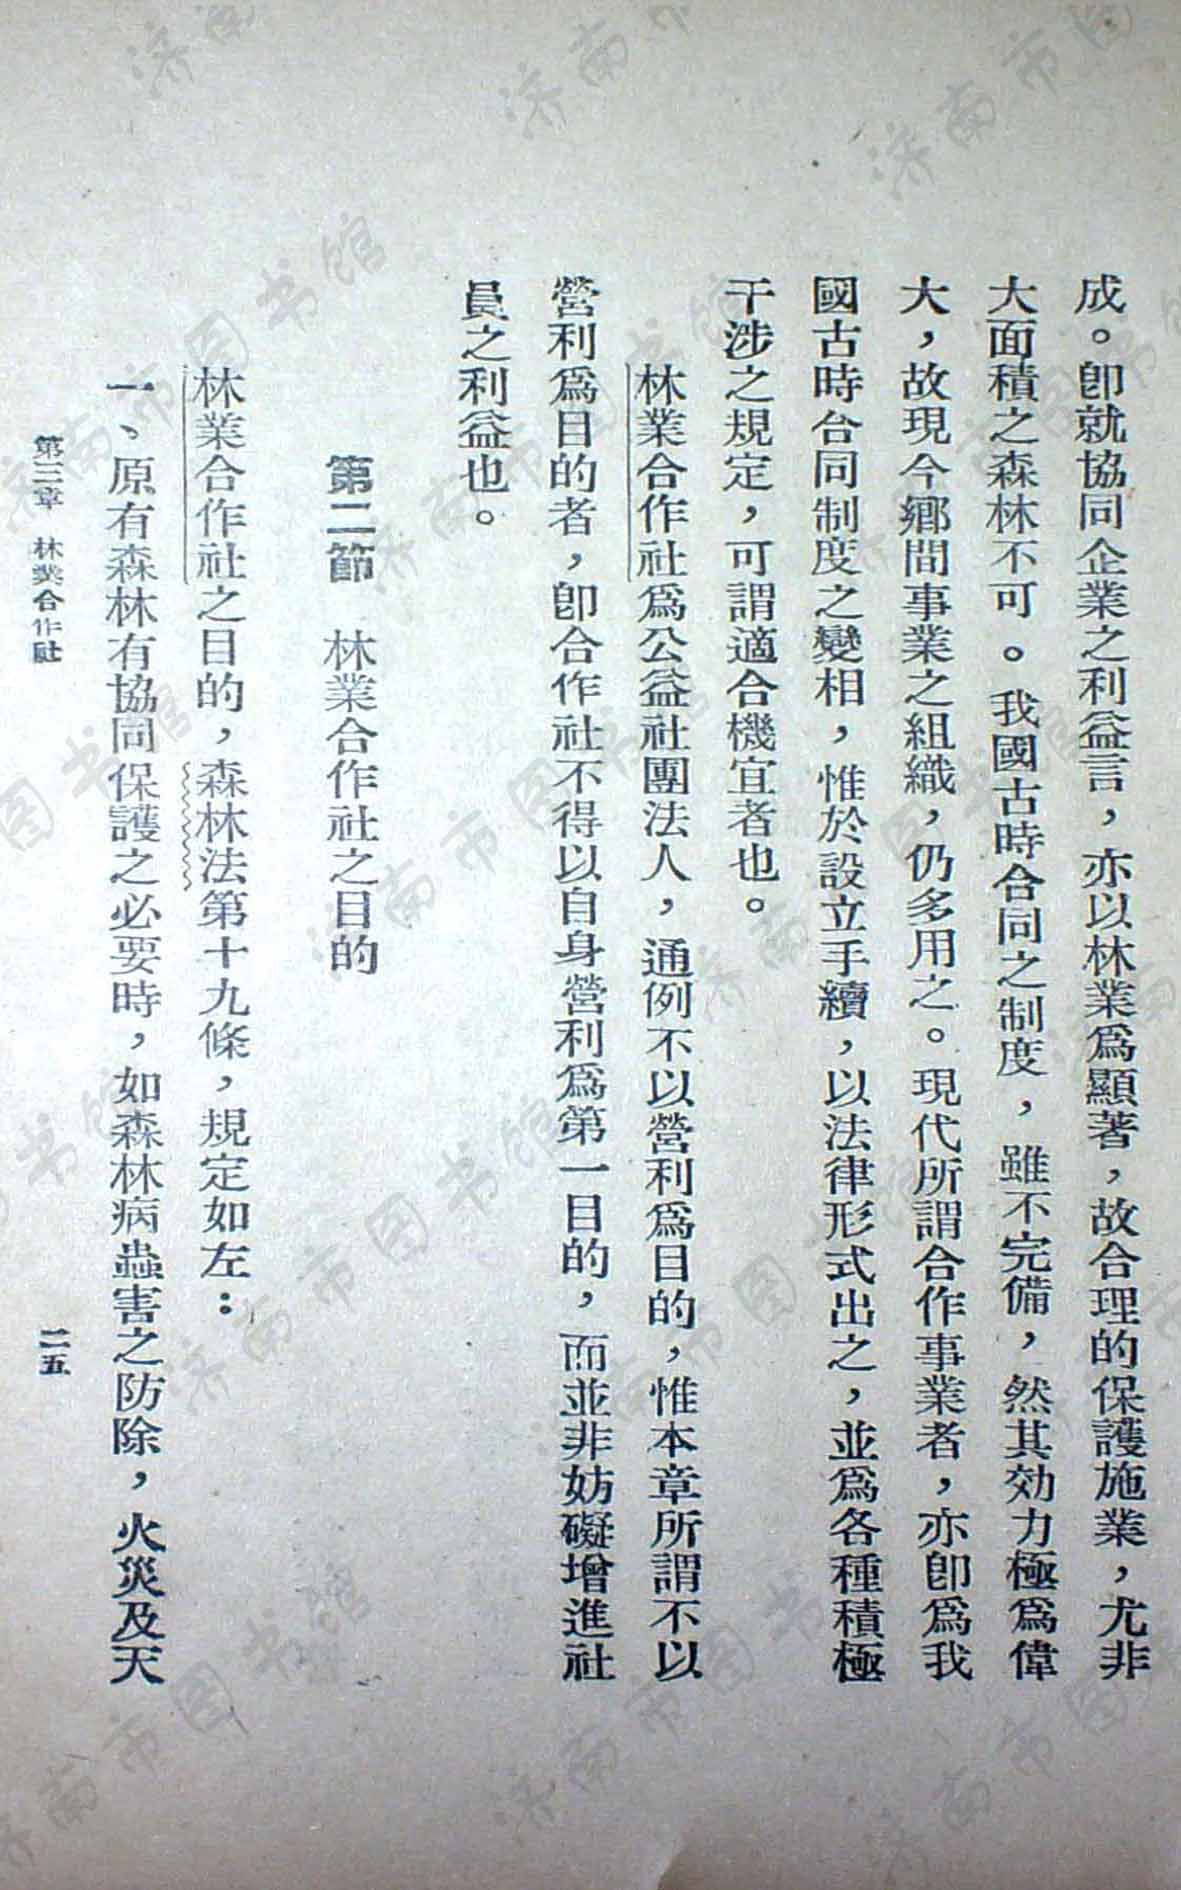 成。卽就協同企業之利益言，亦以林業爲顯著，故合理的保護施業，尤非
大面積之森林不可。我國古時合同之制度，雖不完備，然其効力極爲偉
大，故現今鄉間事業之組織，仍多用之。現代所謂合作事業者，亦卽爲我
國古時合同制度之變相，惟於設立手續，以法律形式出之，並爲各種積極
干涉之規定，可謂適合機宜者也。
林業合作社爲公益社團法人，通例不以營利爲目的，惟本章所謂不以
營利爲目的者，卽合作社不得以自身營利爲第一目的，而並非妨礙增進社
員之利益也。
第二節 林業合作社之目的
林業合作社之目的，森林法第十九條，規定如左：
一、原有森林有協同保護之必要時，如森林病蟲害之防除，火災及天
第三章 林業合作社 二五
济南市图书馆